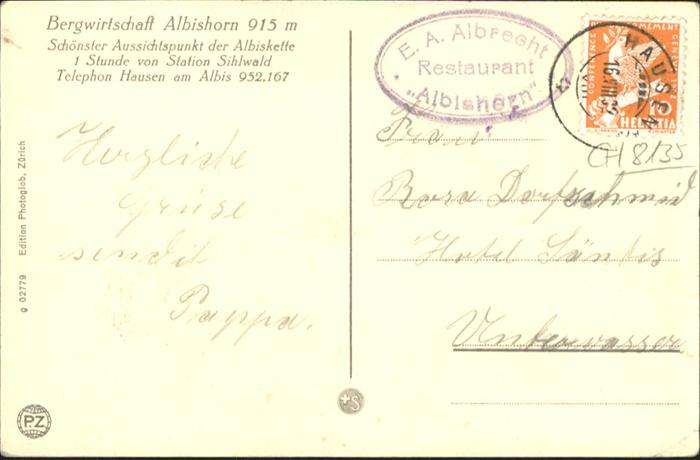 Bergwirtschaft Albishorn 915 m
Schönster Aussichtspunkt der Albiskette
1 Stunde von Station Sihlwald
Telephon Hausen am Albis 952.167
Herzliche
Grüsse
sendet
Pappa.
g 02779 Edition Photoglob, Zürich
PZ
E. A. Albrecht
Restaurant
"Albishorn"
HAUSEN
HELVETIA
CH 8/35
Frau
Rosa Dorfschmid
Hotel Säntis
Unterwasser